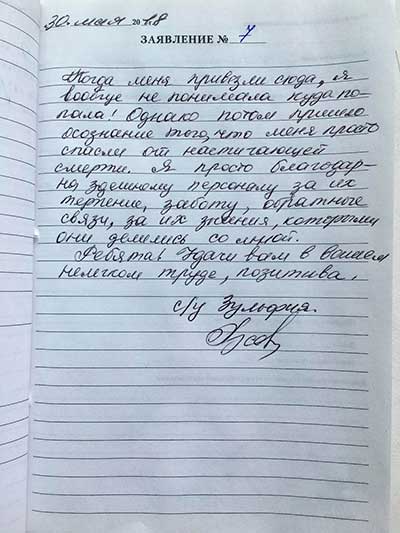 30. мая 2018
ЗАЯВЛЕНИЕ № 7
Когда меня привезли сюда, я
вообще не понимала куда по-
пала! Однако потом пришло
осознание того, что меня просто
спасли от настигающей
смерти. Я просто благодар-
на здешнему персоналу за их
терпение, заботу, обратные
связи, за их знания, которыми
они делились со мной.
Ребята! Удачи вам в вашем
нелегком труде, позитива.
с/у Зульфия.